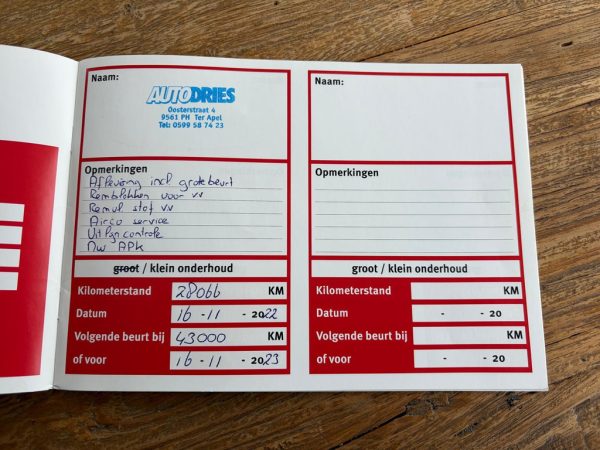 Naam:
AUTODRIES
Oosterstraat 4
9561 PH Ter Apel
Tel: 0599 58 74 23
Opmerkingen
Aflevering incl grote beurt
Remblokken voor vv
Remvl stof vv
Airco service
Uitlijn controle
Nw APK
groot / klein onderhoud
Kilometerstand 28066 KM
Datum 16 - 11 - 2022
Volgende beurt bij 43000 KM
of voor 16 - 11 - 2023
Naam:
Opmerkingen
groot / klein onderhoud
Kilometerstand KM
Datum - - 20
Volgende beurt bij KM
of voor - - 20